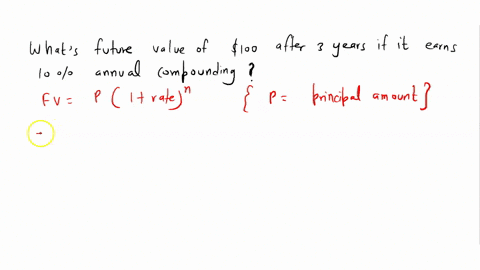 What's future value of $100 after 3 years if it earns
10% annual compounding?
FV = P (1 + rate)^n { P = principal amount }